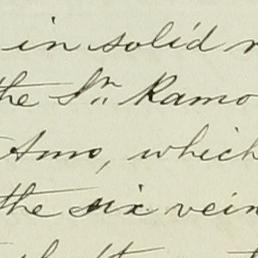 in solid r
the Sn. Ramo
Amo, which
the six vein